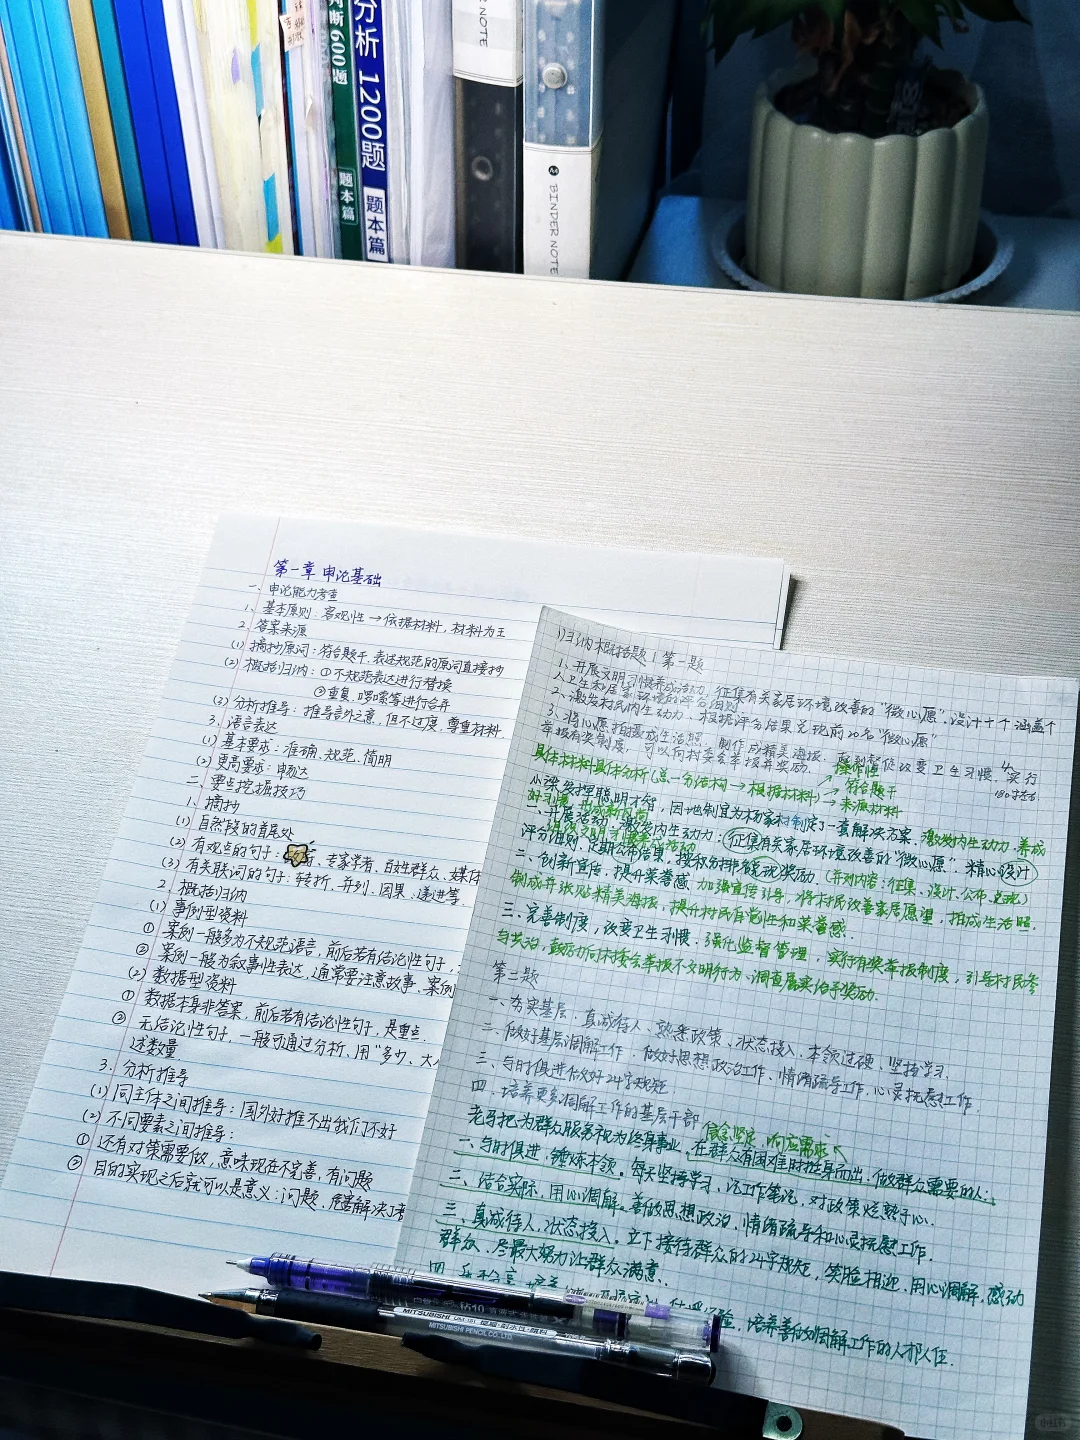 判断 600题
题本篇
分析 1200题
题本篇
NOTE
A4
BINDER NOTE
第一章 申论基础
一、申论能力考查
1、基本原则：客观性→依据材料，材料为王
2. 答案来源
(1) 摘抄原词：符合题干，表述规范的原词直接抄
(2) 概括归纳：①不规范表达进行替换
②重复、啰嗦等进行合并
(3) 分析推导：推导言外之意，但不过度，尊重材料
3. 语言表达
(1) 基本要求：准确、规范、简明
(2) 更高要求：申畅达
二、要点挖掘技巧
1、摘抄
(1) 自然段的首尾处
(2) 有观点的句子：专家学者、百姓群众、媒体
(3) 有关联词的句子：转折、并列、因果、递进等.
2. 概括归纳
(1) 事例型资料
① 案例一般多为不规范语言，前后若有结论性句子，
② 案例一般为叙事性表达，通常要注意故事、案例
(2) 数据型资料
① 数据本身非答案，前后若有结论性句子，是重点.
② 无结论性句子，一般可通过分析、用“多少、大小
述数量
3. 分析推导
(1) 同主体之间推导：国外好推不出我们不好
(2) 不同要素之间推导：
① 还有对策需要做，意味现在不完善，有问题
② 目的实现之后就可以是意义；问题，危害解决了
归纳概括题 | 第一题
1、开展文明习惯养成活动，征集有关家居环境改善的“微心愿”、设计十个涵盖个
人卫生和居家环境的评分细则.
2、激发村民内生动力，根据评分结果兑现前20名“微心愿”
3、将心愿拍摄成生活照，制作成精美海报，
4、实行
举报有奖制度，可以向村委会举报并奖励.
180字左右
具体材料具体分析(总一分结构→根据材料)→
操作性
符合题干
来源材料
小梁发挥聪明才智，因地制宜为杨家村制定了一套解决方案，激发内生动力，养成
好习惯
一、开展活动，激发内生动力：征集有关家居环境改善的“微心愿”，精心设计
评分细则，定期公布结果，按积分排名兑现奖励.（并列内容：征集、设计、公布、兑现）
二、创新宣传，提升荣誉感，加强宣传引导，将村民改善家居愿望，拍成生活照，
制成并张贴精美海报，提升村民自觉性和荣誉感.
三、完善制度，改变卫生习惯，强化监督管理，实行有奖举报制度，引导村民参
与共治，鼓励向村委会举报不文明行为、调查属实给予奖励.
第二题
一、夯实基层，真诚待人、熟悉政策、状态投入、本领过硬、坚持学习.
二、做好基层调解工作，做好思想政治工作、情绪疏导工作，心灵抚慰工作.
三、与时俱进做好24字规范
四、培养更多调解工作的基层干部
信念坚定、响应需求
老马把为群众服务视为终身事业，在群众有困难时挺身而出，做群众需要的人：
一、与时俱进，锤炼本领。每天坚持学习、记工作笔记，对政策烂熟于心.
二、结合实际，用心调解。善做思想政治，情绪疏导和心灵抚慰工作.
三、真诚待人，状态投入。立下接待群众的24字规范，笑脸相迎，用心调解，感动
群众，尽最大努力让群众满意.
四、
验，培养善做调解工作的人才队伍.
MITSUBISHI
MITSUBISHI PENCIL CO., LTD.
小红书